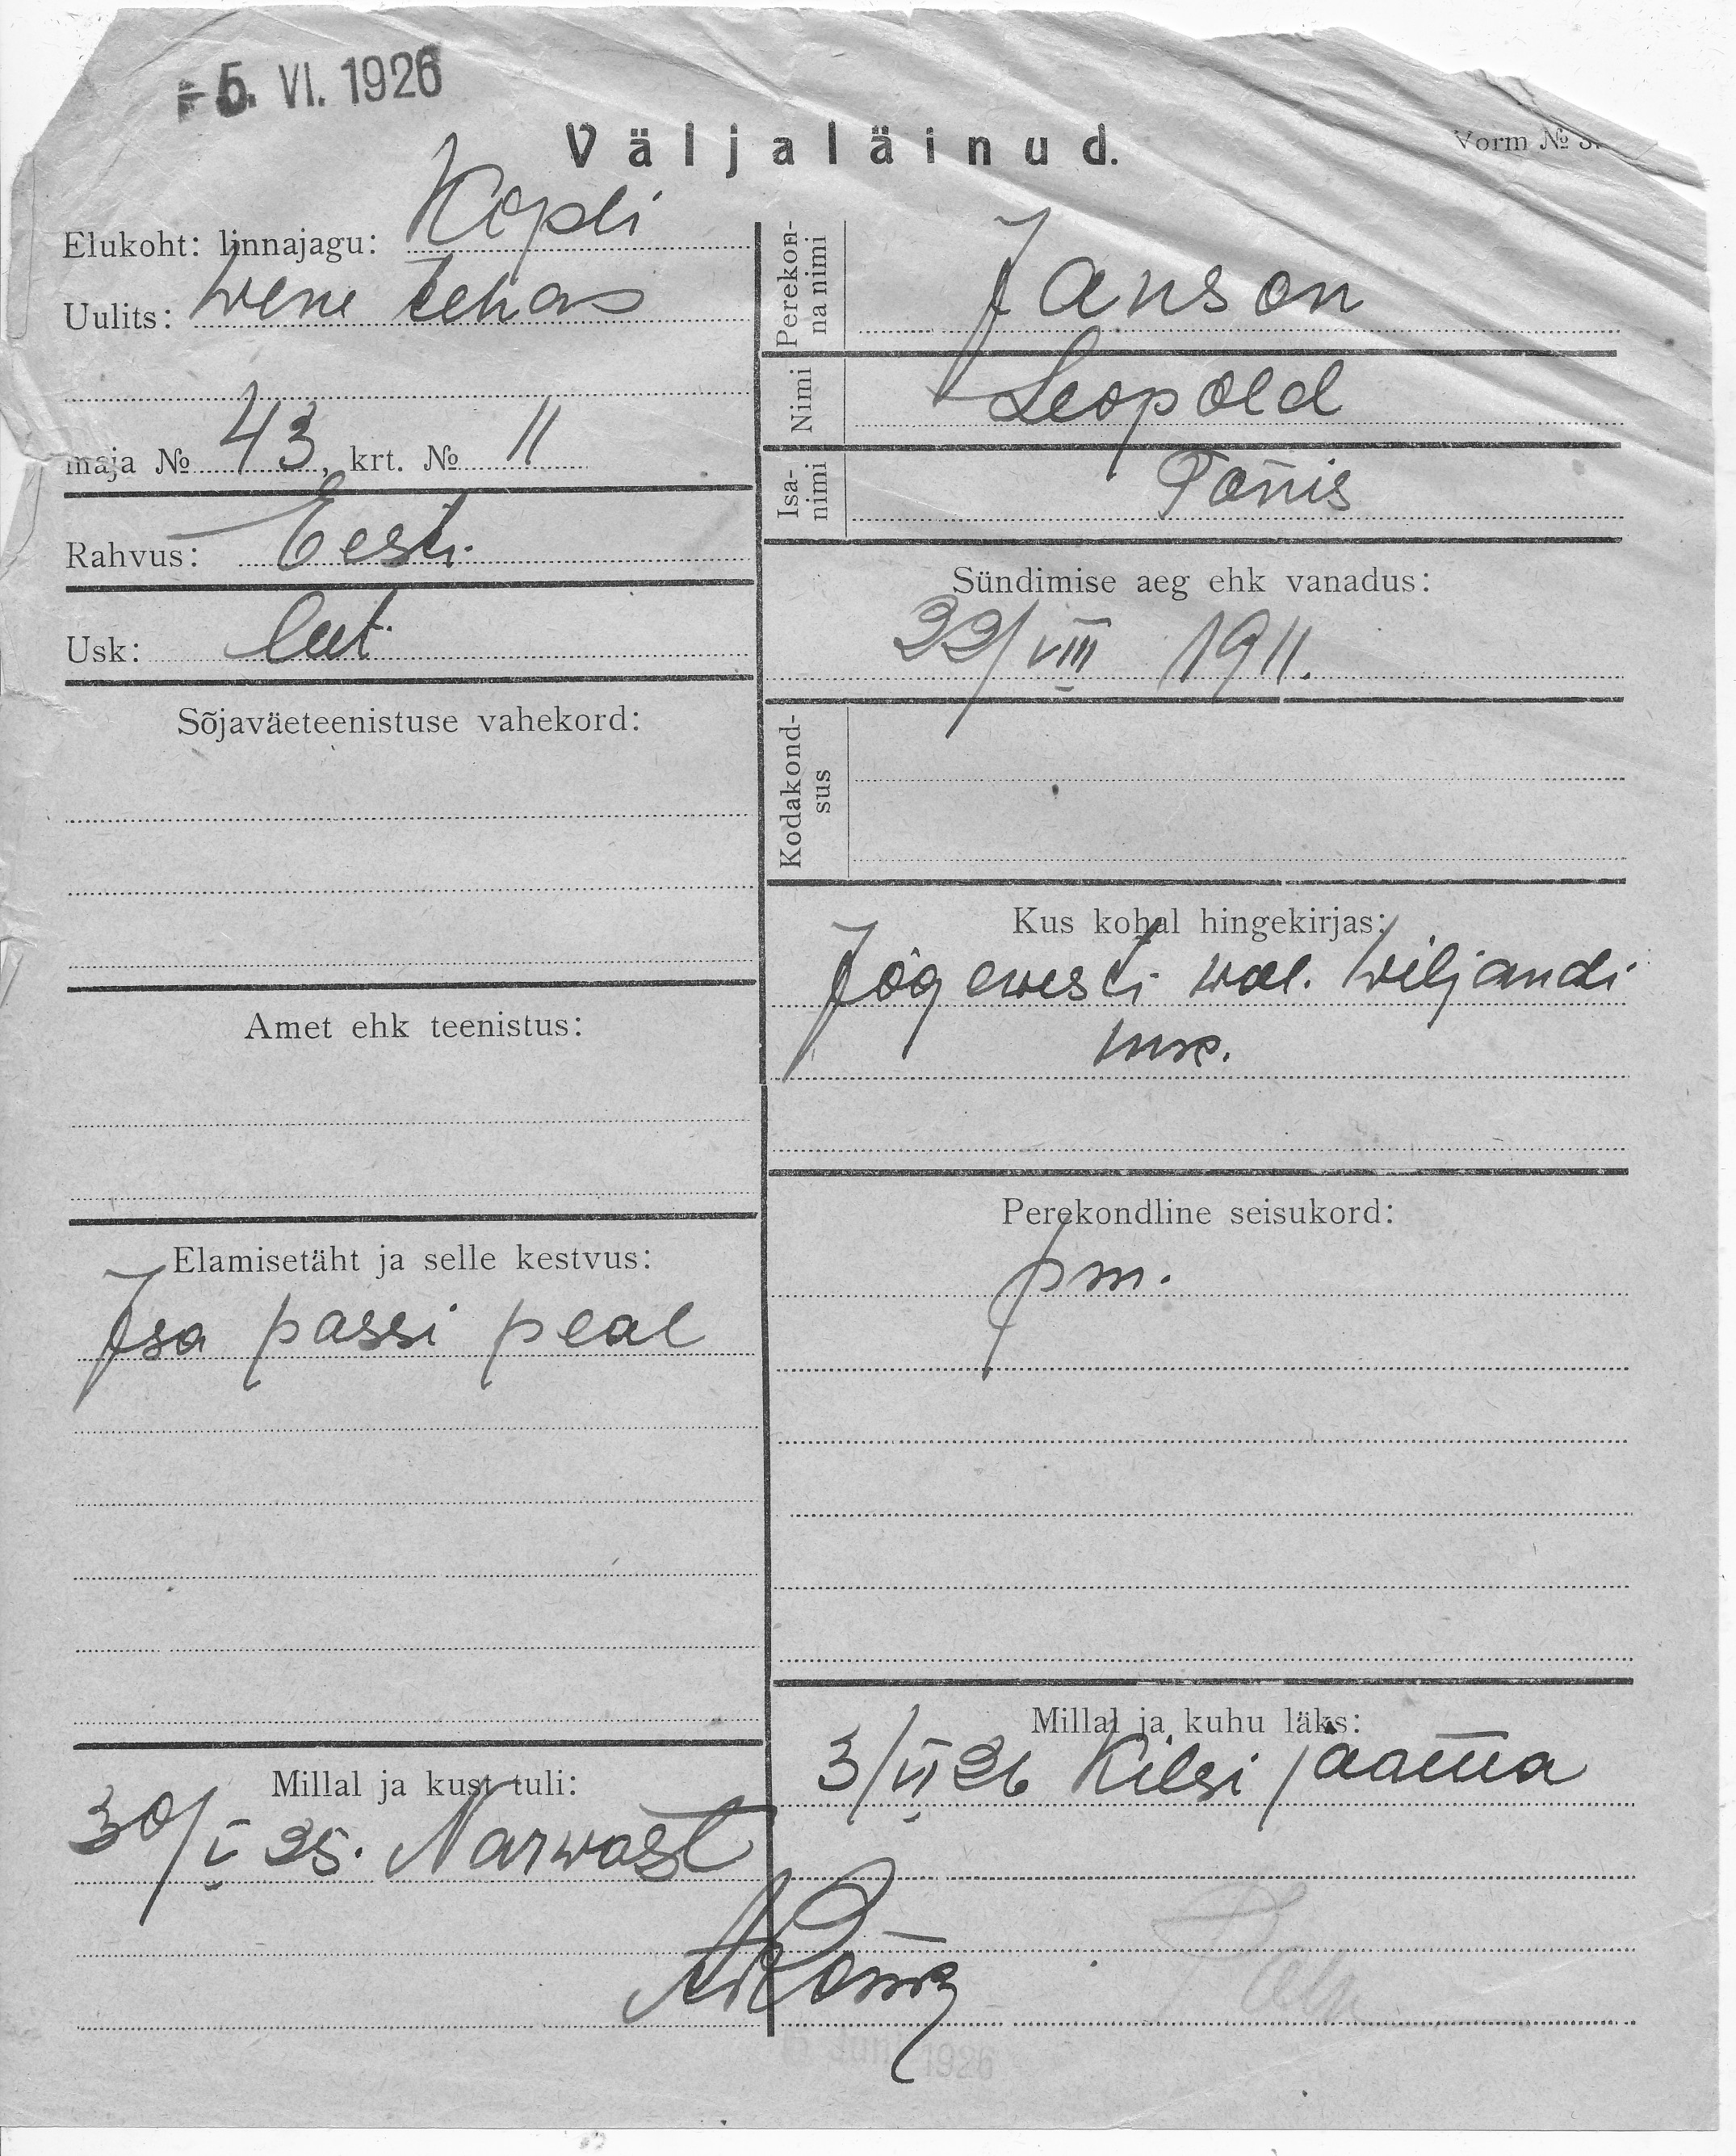 5. VI. 1926
Väljaläinud.
Vorm №
Elukoht: linnajagu: Kopli
Uulits: Wene tehas
maja № 43, krt. № 11
Rahvus: Eesti
Usk: lut.
Sõjaväeteenistuse vahekord:
Amet ehk teenistus:
Elamisetäht ja selle kestvus:
Isa passi peal
Millal ja kust tuli:
30/V 25. Narwast
Perekon-
na nimi
Janson
Nimi
Leopold
Isa-
nimi
Tõnis
Sündimise aeg ehk vanadus:
22/VIII 1911.
Kodakond-
sus
Kus kohal hingekirjas:
Jõgewesti wal. Wiljandi
mk.
Perekondline seisukord:
pm.
Millal ja kuhu läks:
3/VI 26 Kilsi jaama
Juni 1926